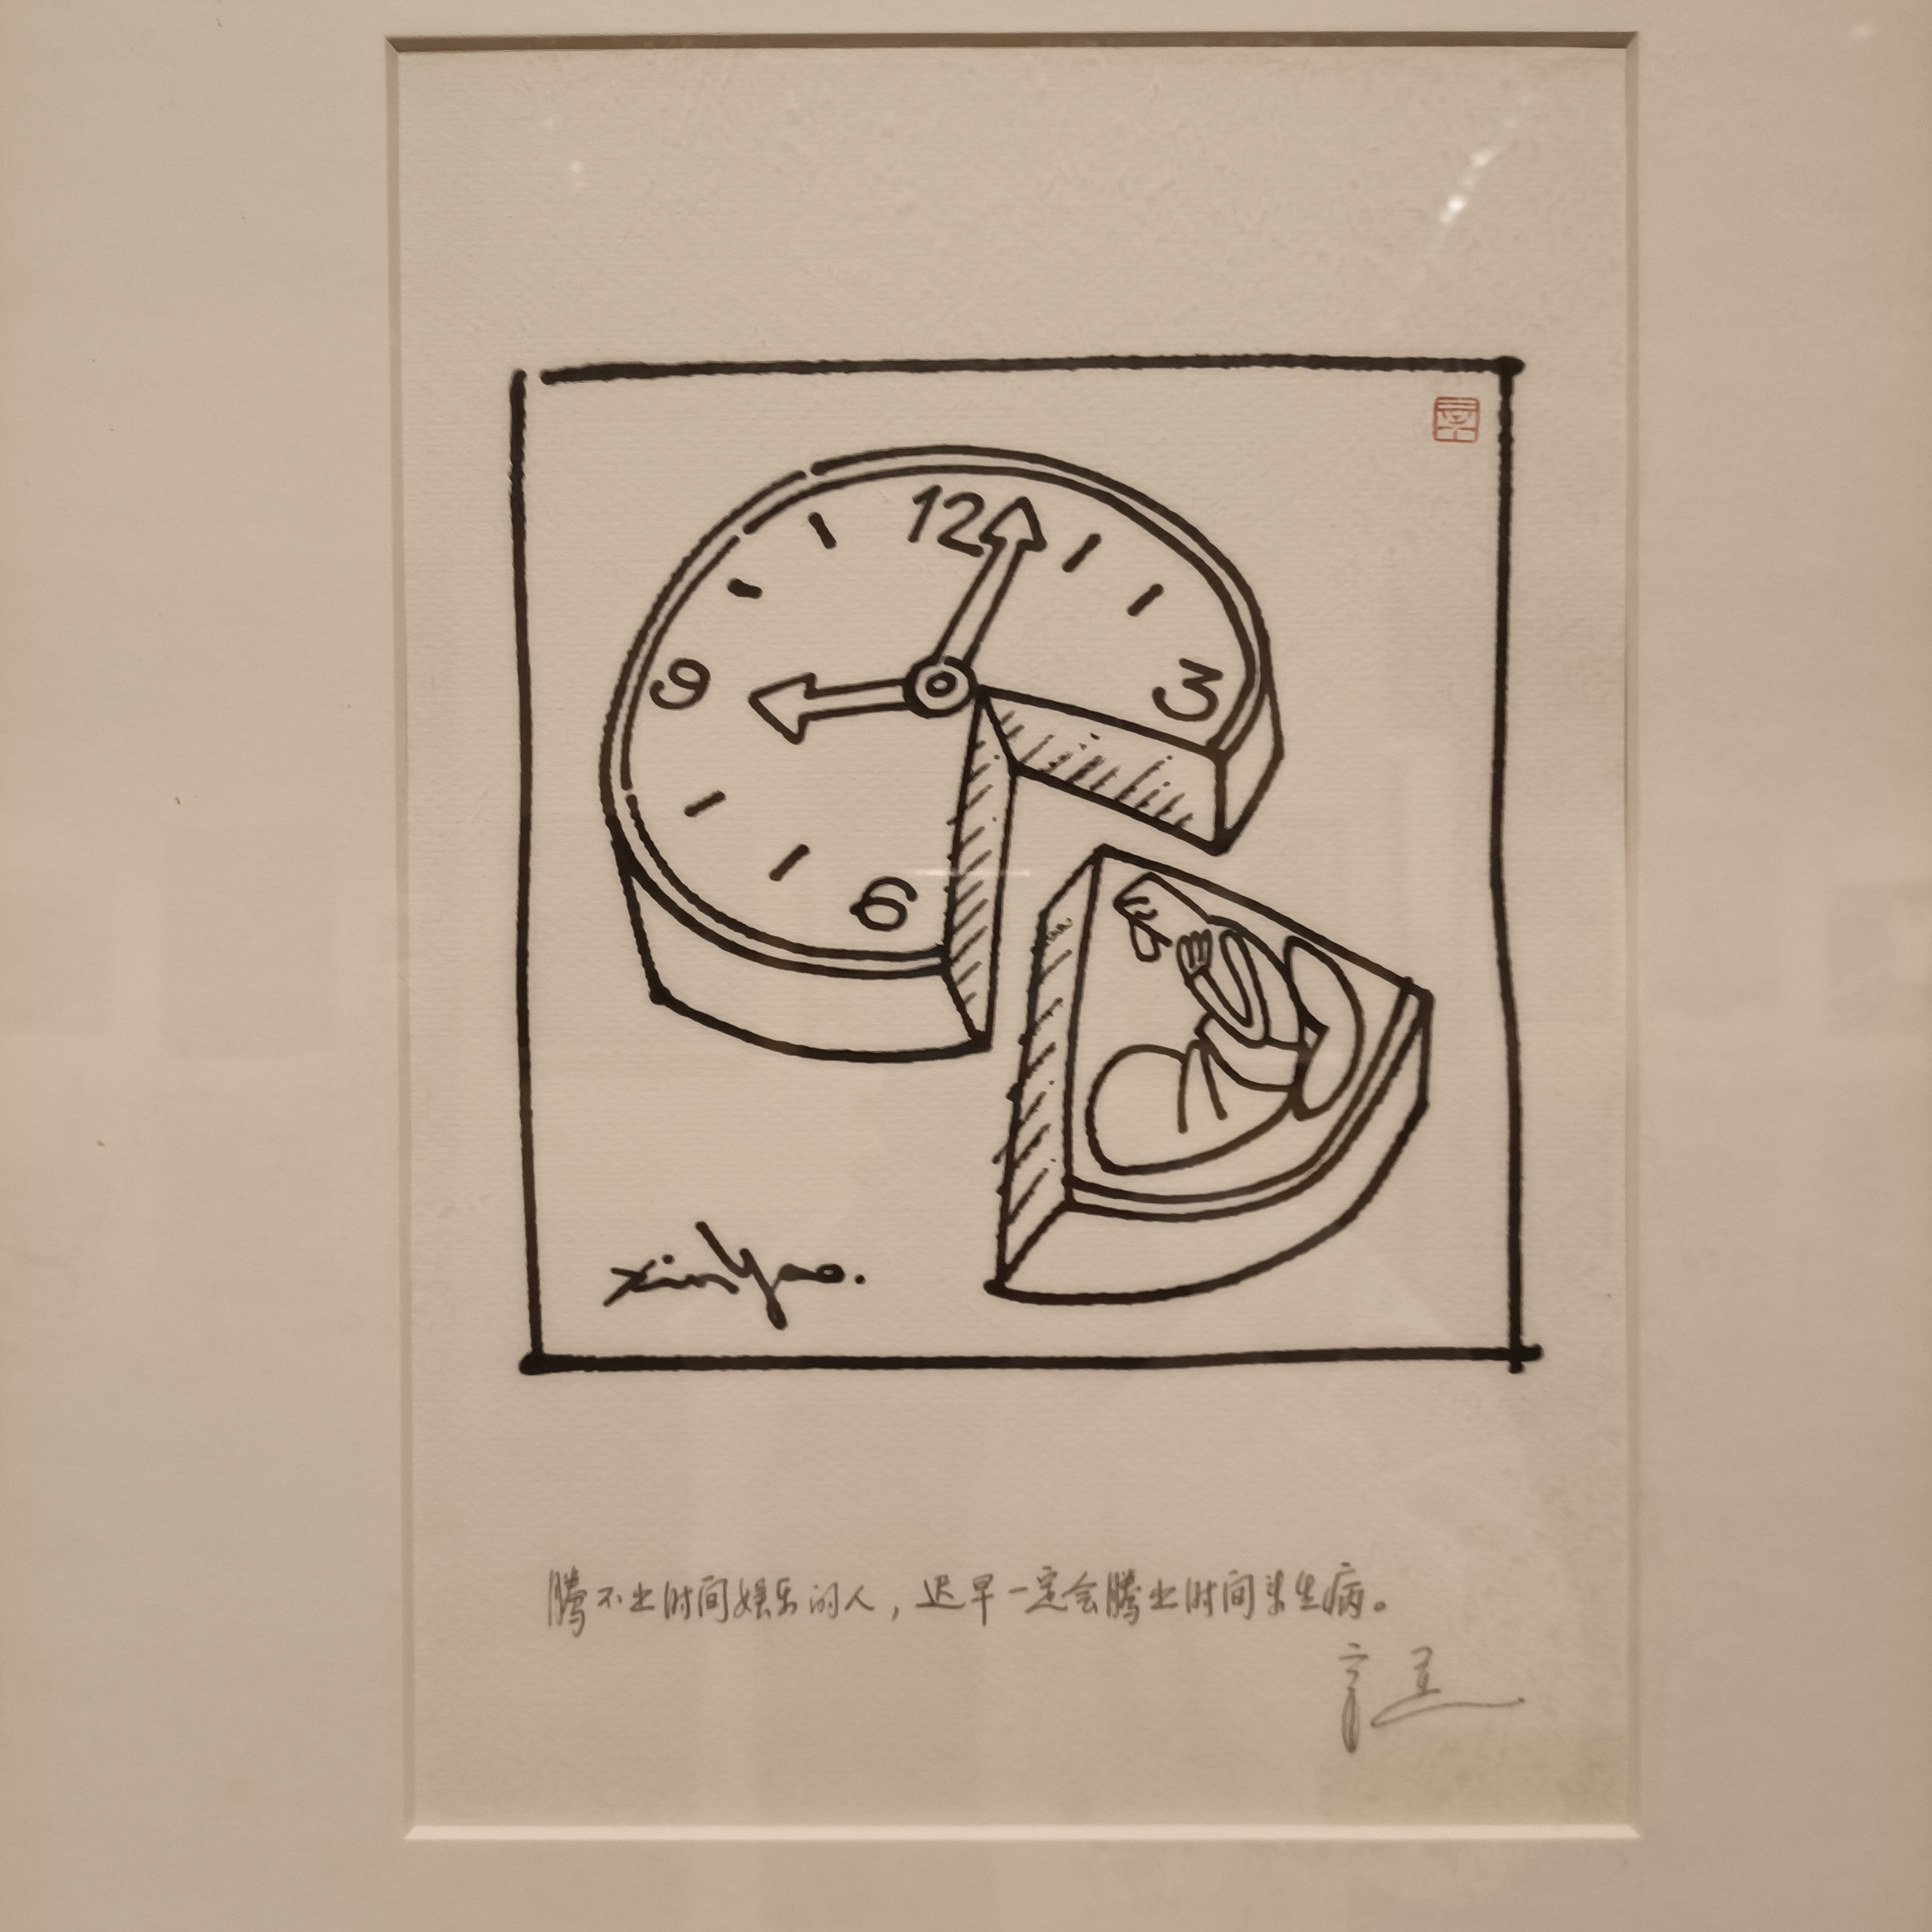 12
9
3
6
xinyao.
腾不出时间娱乐的人，迟早一定会腾出时间来生病。